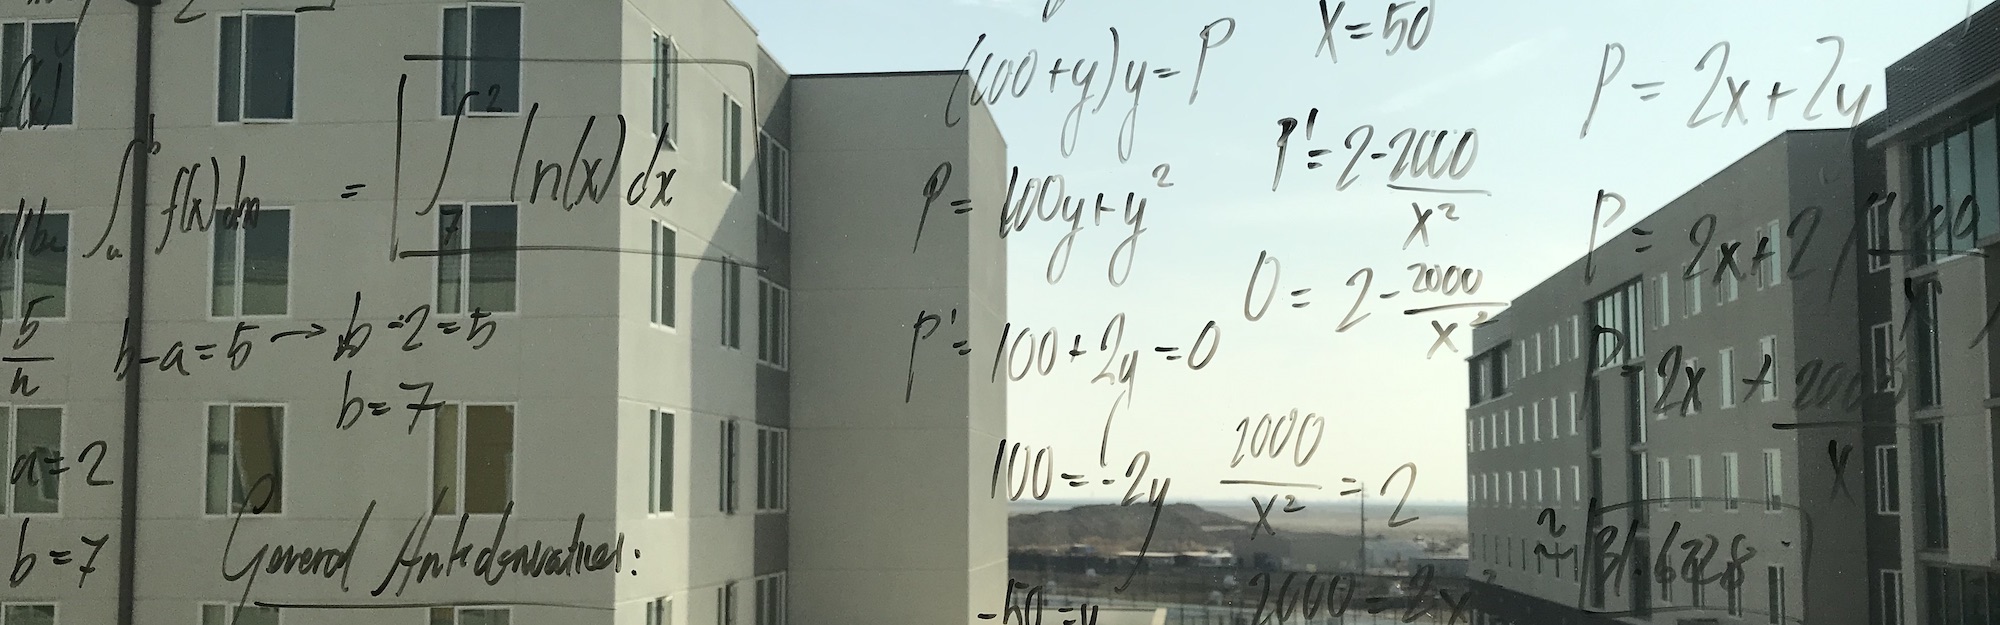 f(x)
∫_a^b f(x) dx = ∫_7^2 ln(x) dx
5/n b-a=5 → b-2=5
b=7
a=2
b=7
General Antiderivatives:
(100+y)y=P
P=100y+y²
P'=100+2y=0
100=-2y
-50=y
X=50
P'=2-2000/x²
0=2-2000/x²
2000/x²=2
2000=2x²
P=2x+2y
P=2x+2(1000/x)
P=2x+2000/x